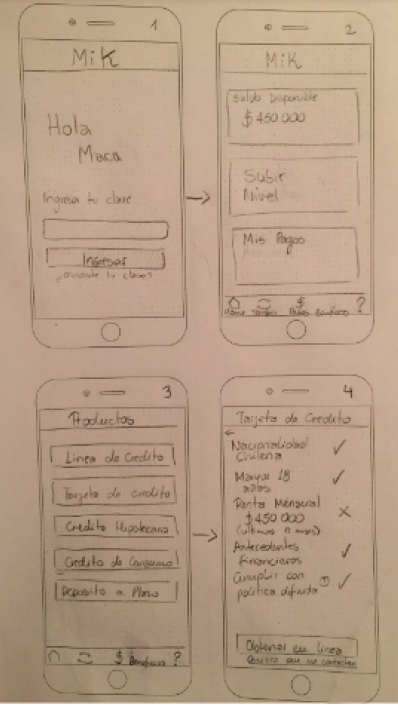 1
Mik
Hola
Maca
Ingresa tu clave
Ingresar
¿olvidaste tu clave?
2
Mik
Saldo Disponible
$ 450 000
Subir
Nivel
Mis Pagos
Home
?
3
Productos
Linea de Credito
Tarjeta de Credito
Credito Hipotecario
Credito de Consumo
Deposito a Plazo
$ Beneficios ?
4
Tarjeta de Credito
←
Nacionalidad ✓
Chilena
Mayor 18 ✓
años
Renta Mensual ✗
$ 450 000
Antecedentes ✓
Financieros
Cumplir con
política definida ? ✓
Obtener en linea
Quiero que me contacten